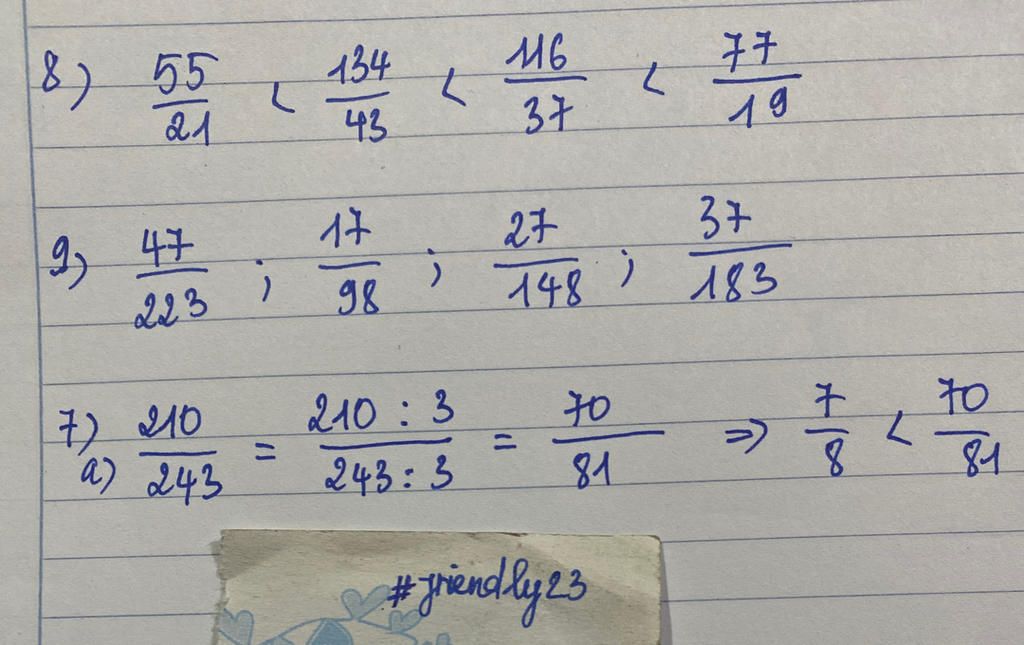 8) 55/21 < 134/43 < 116/37 < 77/19
9) 47/223 ; 17/98 ; 27/148 ; 37/183
7)
a) 210/243 = 210 : 3/243 : 3 = 70/81 => 7/8 < 70/81
#friendly23